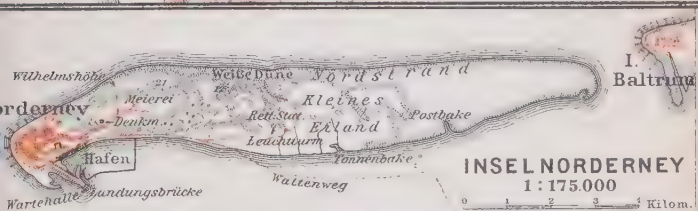 Wilhelmshöhe
21
Weiße Düne
Nordstrand
I.
Baltrum
orderney
Meierei
Kleines
Denkm.
Rett. Stat.
Eiland
Postbake
Leuchtturm
Hafen
Tonnenbake
Wattenweg
Wartehalle
Landungsbrücke
INSEL NORDERNEY
1:175.000
0 1 2 3 4 Kilom.